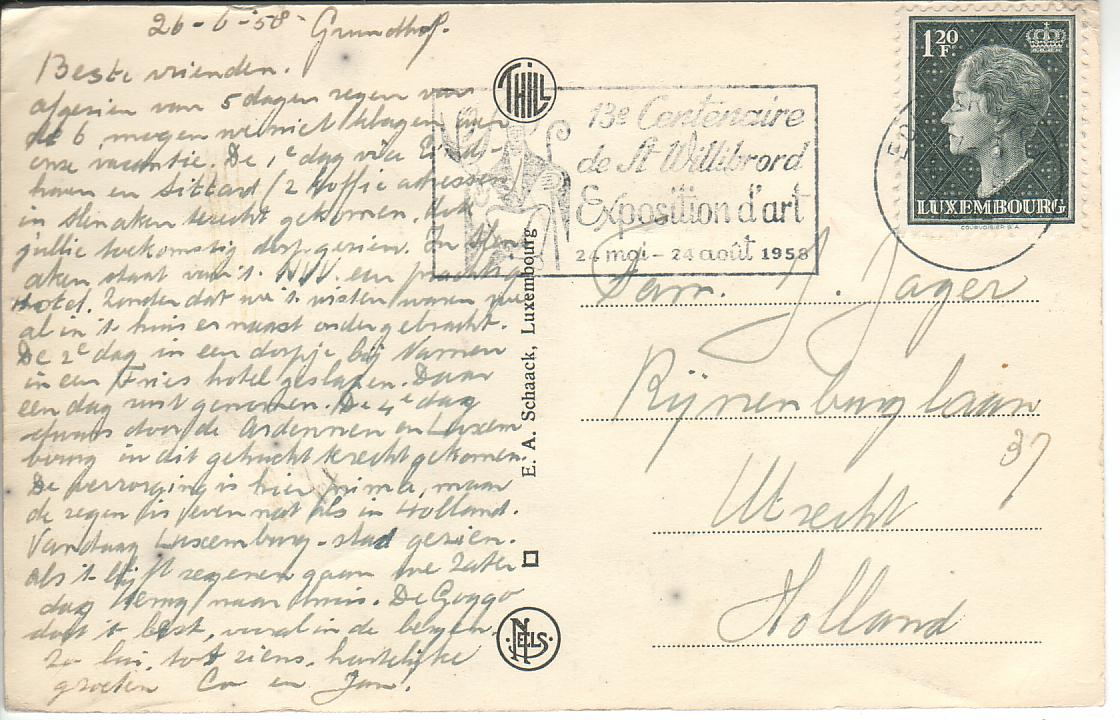 26-6-'58- Grundhof.
Beste vrienden.
afgezien van 5 dagen regen van
de 6, mogen we niet klagen over
onze vacantie. De 1e dag via Eind-
hoven en Sittard / 2 koffie adressen
in Slenaken terecht gekomen, het
jullie toekomstig dorp gezien. In Slen
aken staat van 't N.V.V. een prachtig
Hotel. Zonder dat we 't wisten waren we
al in 't huis er naast ondergebracht.
De 2e dag in een dorpje bij Namen
in een Fries hotel geslapen. Daar
een dag rust genomen. De 4e dag
dwars door de Ardennen en Luxem
burg in dit gehucht terecht gekomen.
De verzorging is hier prima, maar
de regen is even nat als in Holland.
Vandaag Luxemburg-stad gezien.
als 't blijft regenen gaan we Zater
dag terug naar huis. De Goggo
doet 't best, vooral in de bergen.
Zo lui, tot ziens, hartelijke
groeten Co en Jan.
THILL
E. A. Schaack, Luxembourg
NELS
13e Centenaire
de St Willibrord
Exposition d'art
24 mai - 24 août 1958
1.20 F.
LUXEMBOURG
COURVOISIER S.A.
Fam. J. Jager
Rijnenburglaan
37
Utrecht
Holland